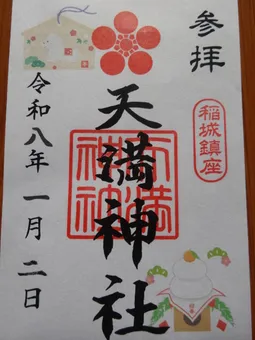 参拝
稲城鎮座
天満神社
天満
神社
令和八年一月二日